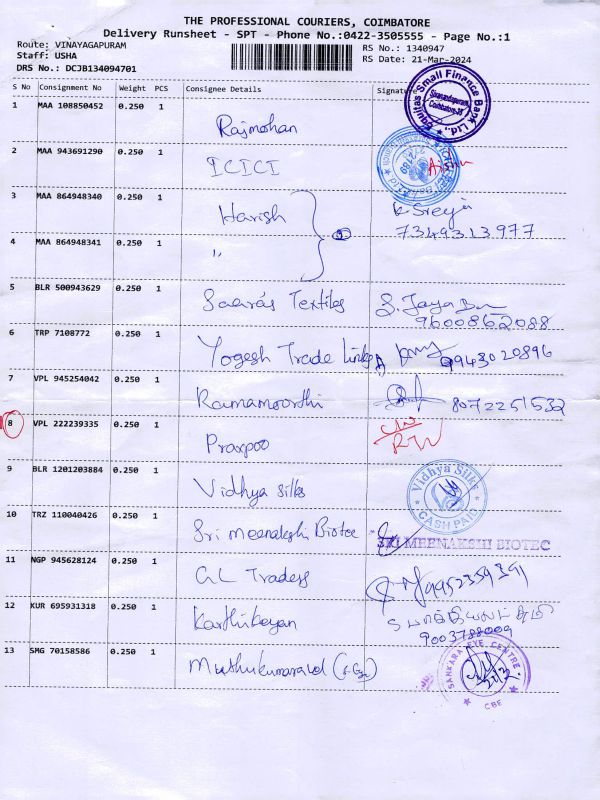 THE PROFESSIONAL COURIERS, COIMBATORE
Delivery Runsheet - SPT - Phone No.:0422-3505555 - Page No.:1
Route: VINAYAGAPURAM
RS No.: 1340947
Staff: USHA
RS Date: 21-Mar-2024
DRS No.: DCJB134094701
S No Consignment No Weight PCS Consignee Details Signature
1 MAA 108850452 0.250 1 Rajmohan
Equitas Small Finance Bank Ltd.
2 MAA 943691290 0.250 1 ICICI
3 MAA 864948340 0.250 1 Harish K Sreeja
7349313977
4 MAA 864948341 0.250 1 "
5 BLR 500943629 0.250 1 Saaras Textiles S. Jaya
9600862088
6 TRP 7108772 0.250 1 Yogesh Trade Links 9943020896
7 VPL 945254042 0.250 1 Ramamoorthi 8072251532
8 VPL 222239335 0.250 1 Praxpoo
9 BLR 1201203884 0.250 1 Vidhya silks
Vidhya Silk
CASH PAID
10 TRZ 110040426 0.250 1 Sri Meenakshi Biotec SRI MEENAKSHI BIOTEC
11 NGP 945628124 0.250 1 GL Traders 9952359391
12 KUR 695931318 0.250 1 Karthikeyan
9003788009
13 SMG 70158586 0.250 1 Muthukumaravel
SANKARA EYE CENTRE
CBE